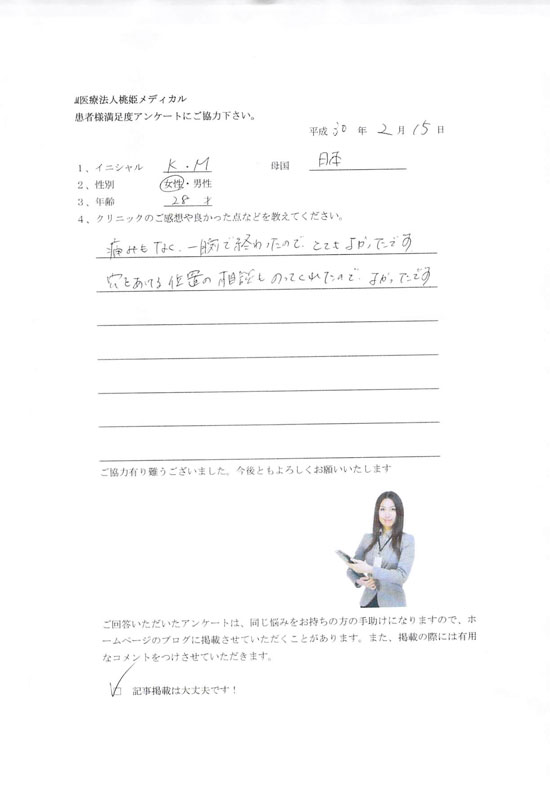 医療法人桃姫メディカル
患者様満足度アンケートにご協力下さい。
平成 30 年 2 月 15 日
1、イニシャル K.M 母国 日本
2、性別 女性・男性
3、年齢 28 才
4、クリニックのご感想や良かった点などを教えてください。
痛みもなく、一瞬で終わったので、とてもよかったです
穴をあける位置の相談ものってくれたので、よかったです
ご協力有り難うございました。今後ともよろしくお願いいたします
ご回答いただいたアンケートは、同じ悩みをお持ちの方の手助けになりますので、ホ
ームページのブログに掲載させていただくことがあります。また、掲載の際には有用
なコメントをつけさせていただきます。
☑ 記事掲載は大丈夫です！